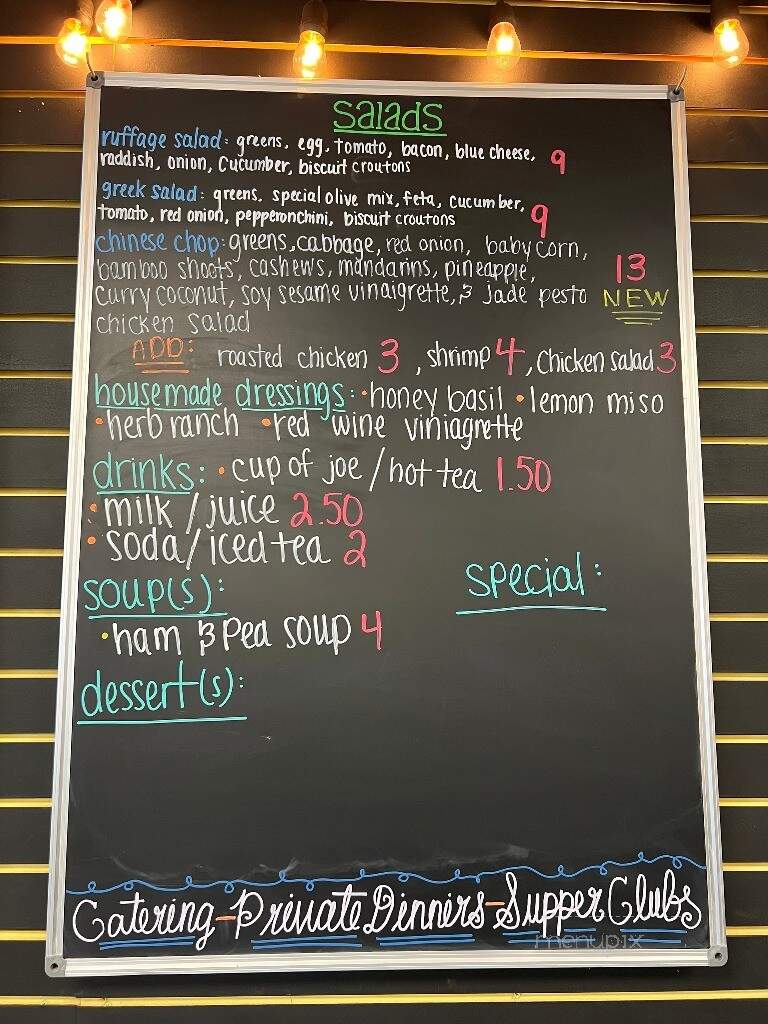 salads
ruffage salad: greens, egg, tomato, bacon, blue cheese,
raddish, onion, cucumber, biscuit croutons 9
greek salad: greens, special olive mix, feta, cucumber,
tomato, red onion, pepperonchini, biscuit croutons 9
chinese chop: greens, cabbage, red onion, baby corn,
bamboo shoots, cashews, mandarins, pineapple, 13
curry coconut, soy sesame vinaigrette, & jade pesto NEW
chicken salad
ADD: roasted chicken 3, shrimp 4, chicken salad 3
housemade dressings: • honey basil • lemon miso
• herb ranch • red wine viniagrette
drinks: • cup of joe / hot tea 1.50
• milk / juice 2.50
• soda / iced tea 2
special:
soup(s):
• ham & pea soup 4
dessert(s):
Catering - Private Dinners - Supper Clubs
menupix